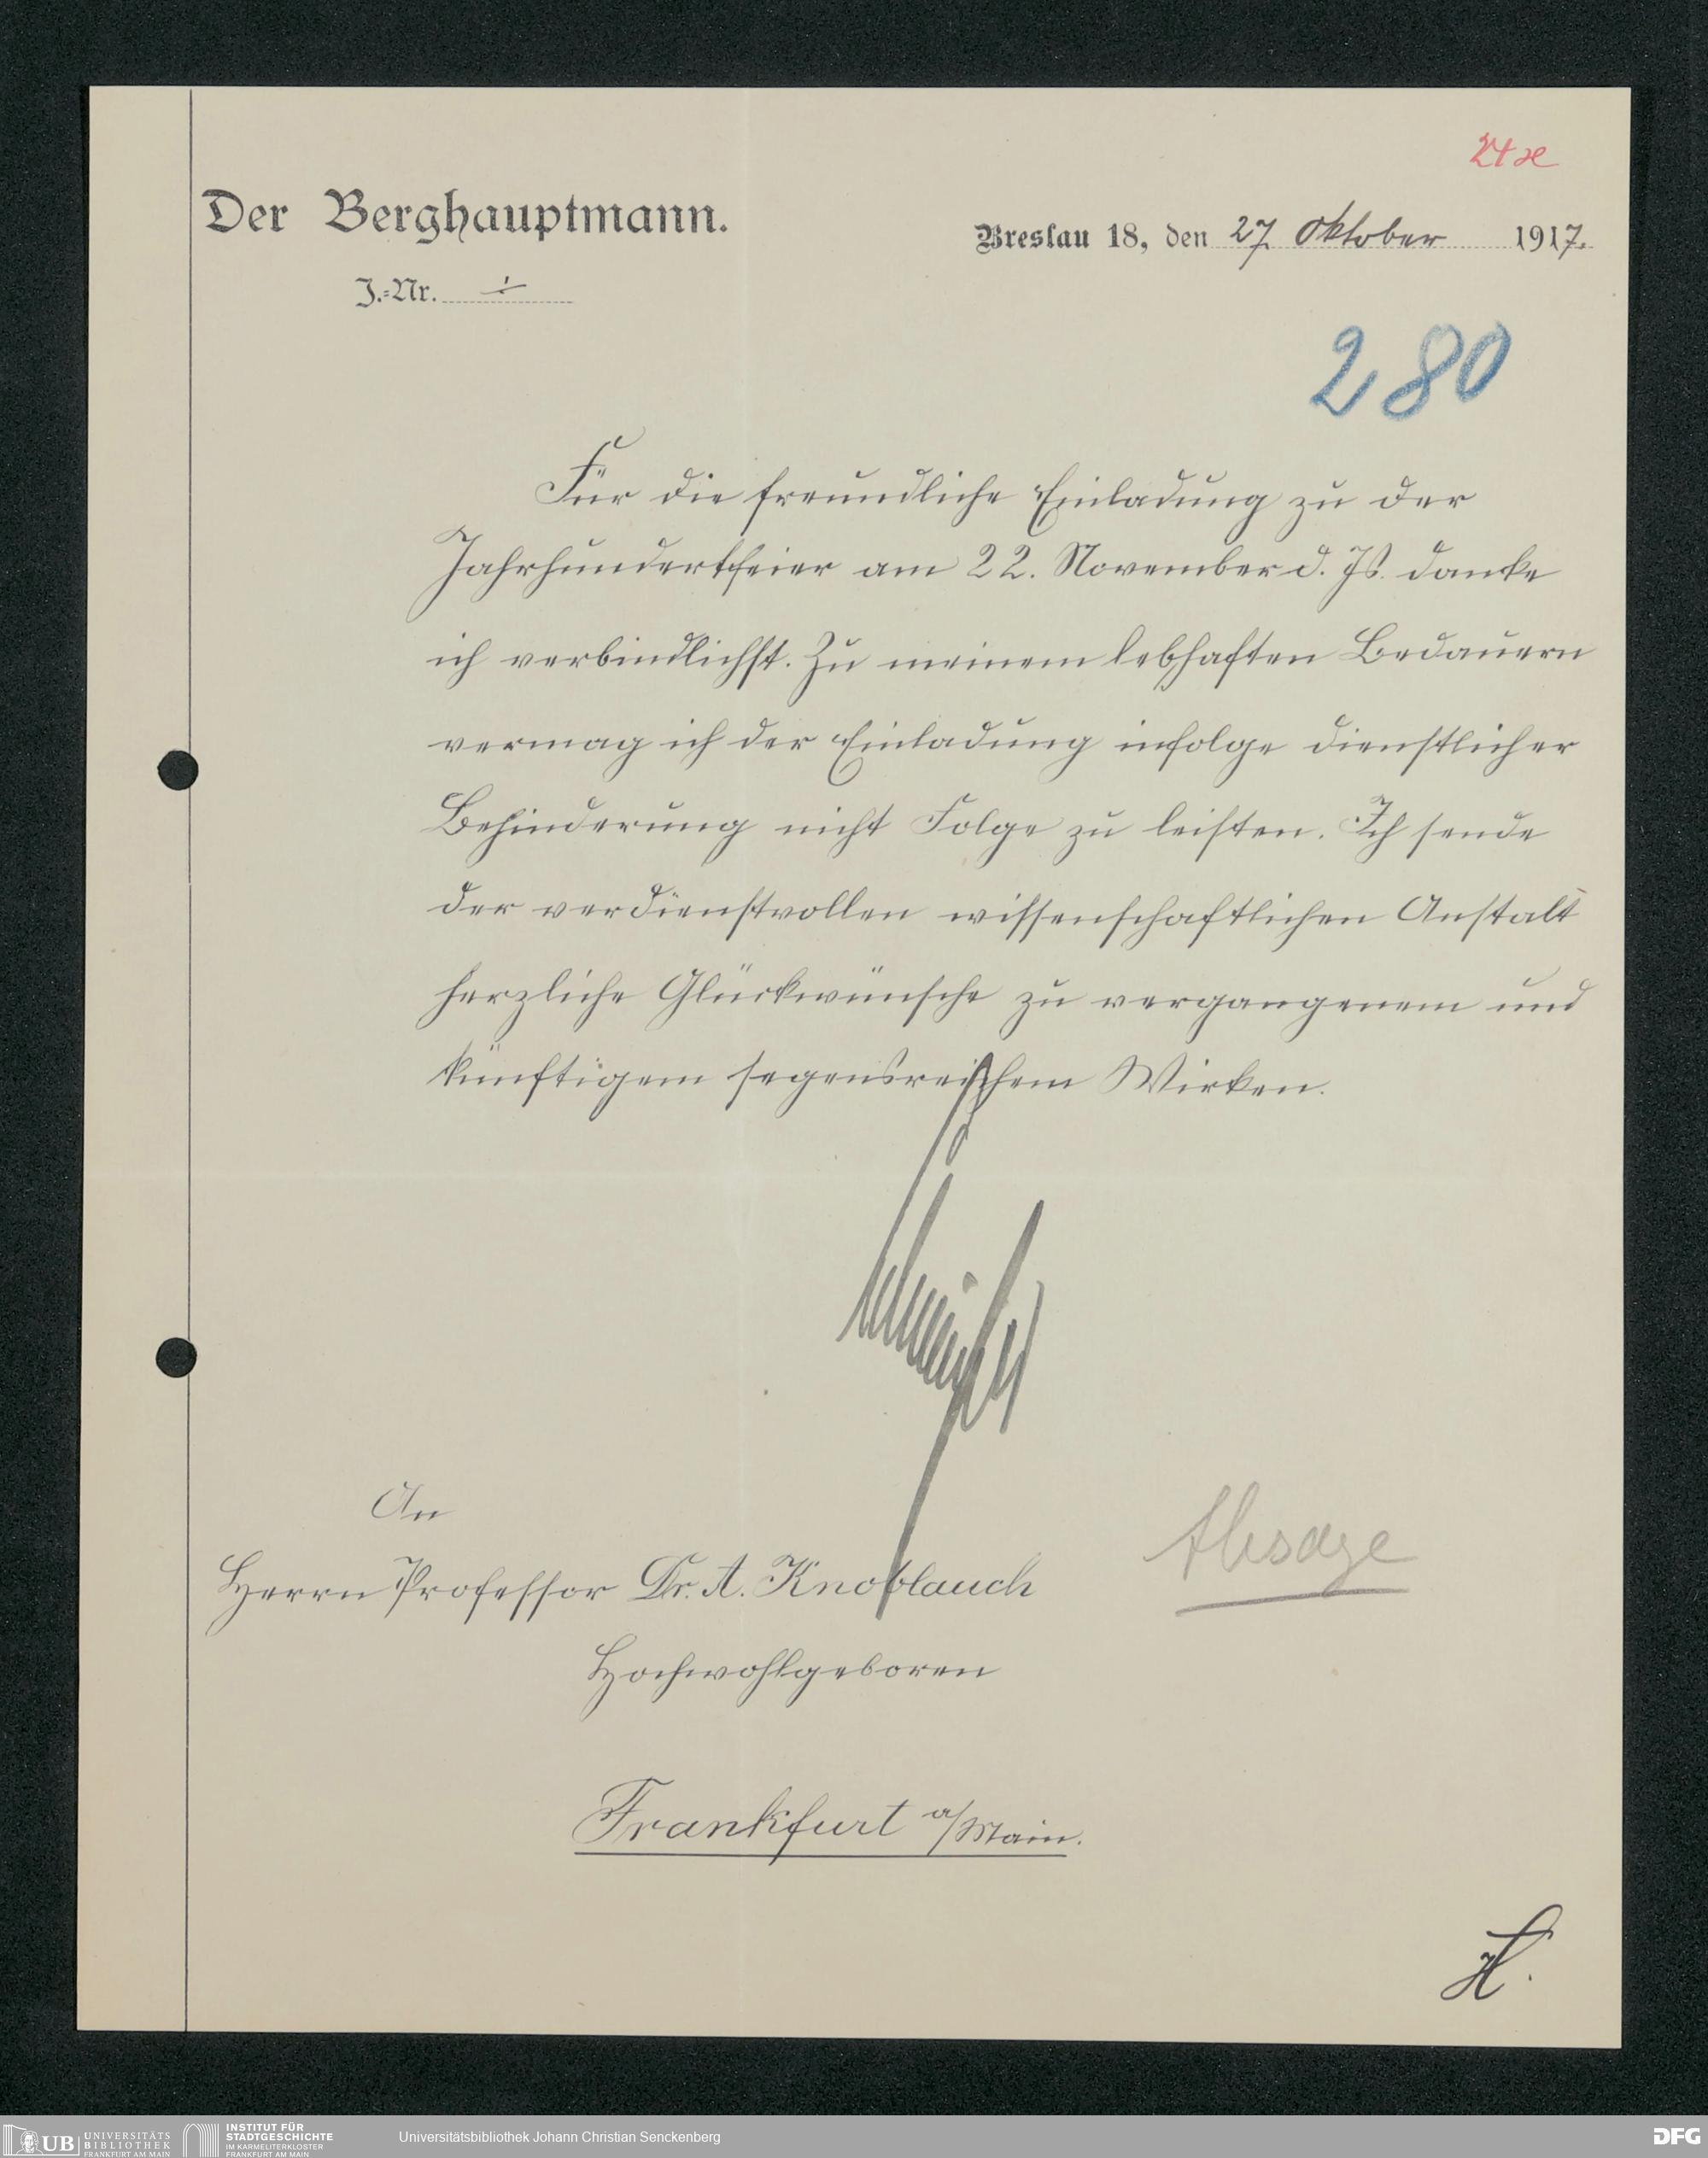 24
Der Berghauptmann.
Breslau 18, den 27. Oktober 1917.
J.-Nr.
280
Für die freundliche Einladung zu der
Jahrhundertfeier am 22. November d. Js. danke
ich verbindlichst. Zu meinem lebhaften Bedauern
vermag ich der Einladung infolge dienstlicher
Behinderung nicht Folge zu leisten. Ich sende
der verdienstvollen wissenschaftlichen Anstalt
herzliche Glückwünsche zu vergangenem und
künftigem segensreichem Wirken.
An
Herrn Professor Dr. A. Knoblauch
Absage
Hochwohlgeboren
Frankfurt a/Main.
H.
UB UNIVERSITÄTS BIBLIOTHEK FRANKFURT AM MAIN
INSTITUT FÜR STADTGESCHICHTE IM KARMELITERKLOSTER FRANKFURT AM MAIN
Universitätsbibliothek Johann Christian Senckenberg
DFG